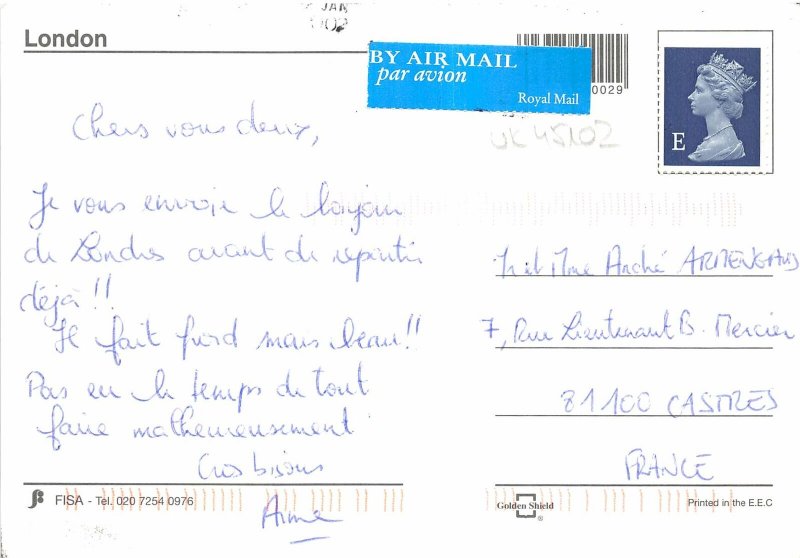 JAN
2002
London
BY AIR MAIL
par avion
Royal Mail
0029
E
UK 45102
Chers vous deux,
Je vous envoie le bonjour
de Londres avant de repartir
déjà !!
Il fait froid mais beau !!
Pas eu le temps de tout
faire malheureusement
Gros bisous
Aime
M et Mme André ARMENGAUD
7, Rue Lieutenant B. Mercier
81100 CASTRES
FRANCE
FISA - Tel. 020 7254 0976
Golden Shield
®
Printed in the E.E.C